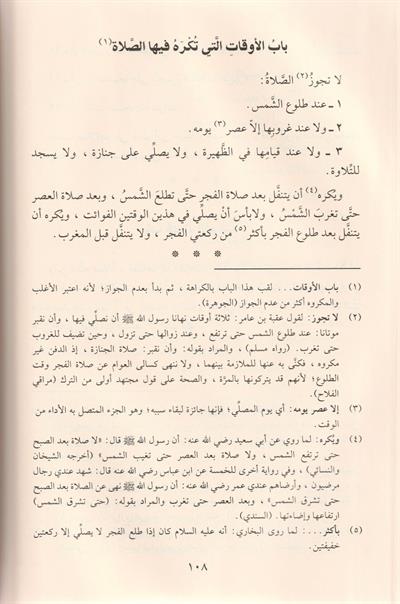 باب الأوقات التي تُكْرَهُ فيها الصَّلاة (١)
لا تجوزُ(٢) الصَّلاةُ:
١ ـ عند طلوع الشَّمس.
٢ ـ ولا عند غروبها إلاَّ عصر(٣) يومه.
٣ ـ ولا عند قيامها في الظَّهيرة ، ولا يصلِّي على جنازة ، ولا يسجد
للتِّلاوة.
ويكره(٤) أن يتنفَّل بعد صلاة الفجر حتَّى تطلعَ الشَّمسُ ، وبعد صلاة العصر
حتَّى تغربَ الشَّمْسُ ، ولابأسَ أنْ يصلِّيَ في هذين الوقتين الفوائت ، ويكره أن
يتنفَّل بعد طلوع الفجر بأكثر(٥) من ركعتي الفجر ، ولا يتنفَّل قبل المغرب.
* * *
(١) باب الأوقات... لقب هذا الباب بالكراهة ، ثم بدأ بعدم الجواز؛ لأنه اعتبر الأغلب
والمكروه أكثر من عدم الجواز (الجوهرة).
(٢) لا تجوز: لقول عقبة بن عامر: ثلاثة أوقات نهانا رسول الله ﷺ أن نصلِّي فيها ، وأن نقبر
موتانا: عند طلوع الشمس حتى ترتفع ، وعند زوالها حتى تزول ، وحين تضيف للغروب
حتى تغرب. (رواه مسلم) ، والمراد بقوله: وأن نقبر: صلاة الجنازة ، إذ الدفن غير
مكروه ، فكنَّى به عنها للملازمة بينهما ، ولا ننهى كسالى العوام عن صلاة الفجر وقت
الطلوع؛ لأنهم قد يتركونها بالمرَّة ، والصحة على قول مجتهد أولى من الترك (مراقي
الفلاح).
(٣) إلا عصر يومه: أي يوم المصلِّي؛ فإنها جائزة لبقاء سببه؛ وهو الجزء المتصل به الأداء من
الوقت.
(٤) ويكره: لما روي عن أبي سعيد رضي الله عنه: أن رسول الله ﷺ قال: «لا صلاة بعد الصبح
حتى ترتفع الشمس ، ولا صلاة بعد العصر حتى تغيب الشمس» (أخرجه الشيخان
والنسائي) ، وفي رواية أخرى للخمسة عن ابن عباس رضي الله عنه قال: شهد عندي رجال
مرضيون ، وأرضاهم عندي عمر رضي الله عنه: أن رسول الله ﷺ نهى عن الصلاة بعد الصبح
حتى تشرق الشمس» ، وبعد العصر حتى تغرب والمراد بقوله: (حتى تشرق الشمس)
ارتفاعها وإضاءتها. (السندي).
(٥) بأكثر...: لما روى البخاري: أنه عليه السلام كان إذا طلع الفجر لا يصلِّي إلا ركعتين
خفيفتين.
١٠٨